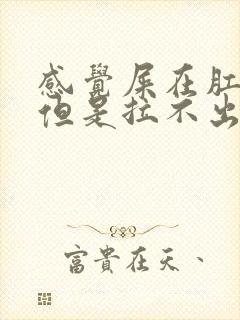 感覺屎在肛
但是拉不出
富貴在天、